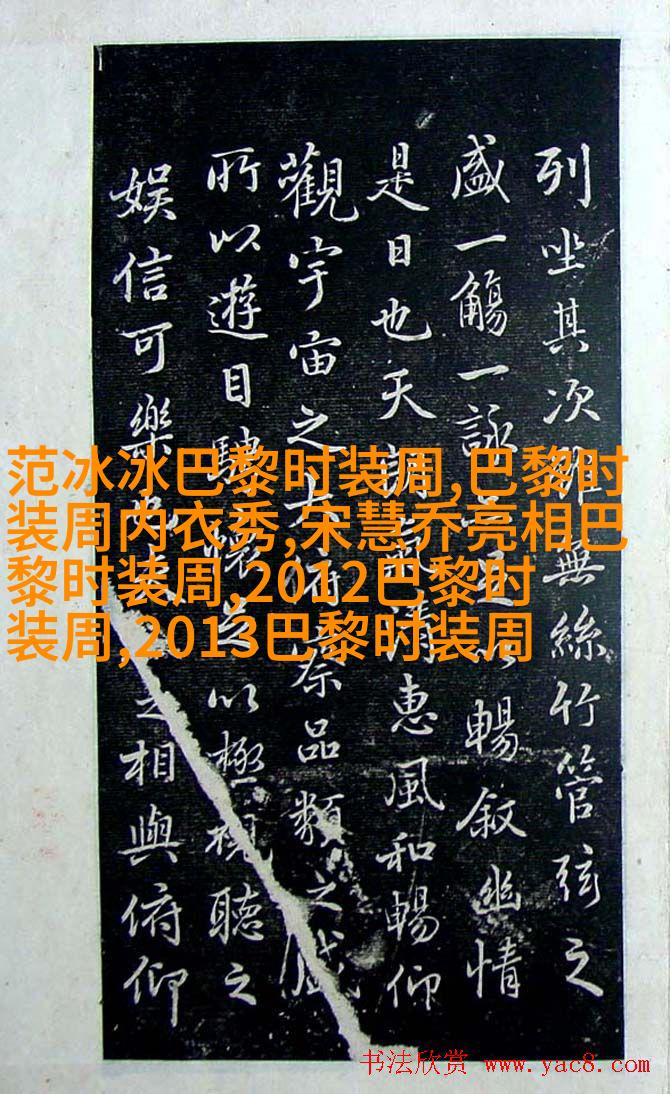 列坐其次雖無絲竹管弦之
盛一觴一詠足以暢叙幽情
是日也天朗氣清惠風和暢仰
觀宇宙之大俯察品類之盛
所以遊目騁懷足以極視聽之
娛信可樂也夫之相與俯仰
范冰冰巴黎时装周,巴黎时
装周内衣秀,宋慧乔亮相巴
黎时装周,2012巴黎时
装周,2013巴黎时装周
书法欣赏 www.yac8.com